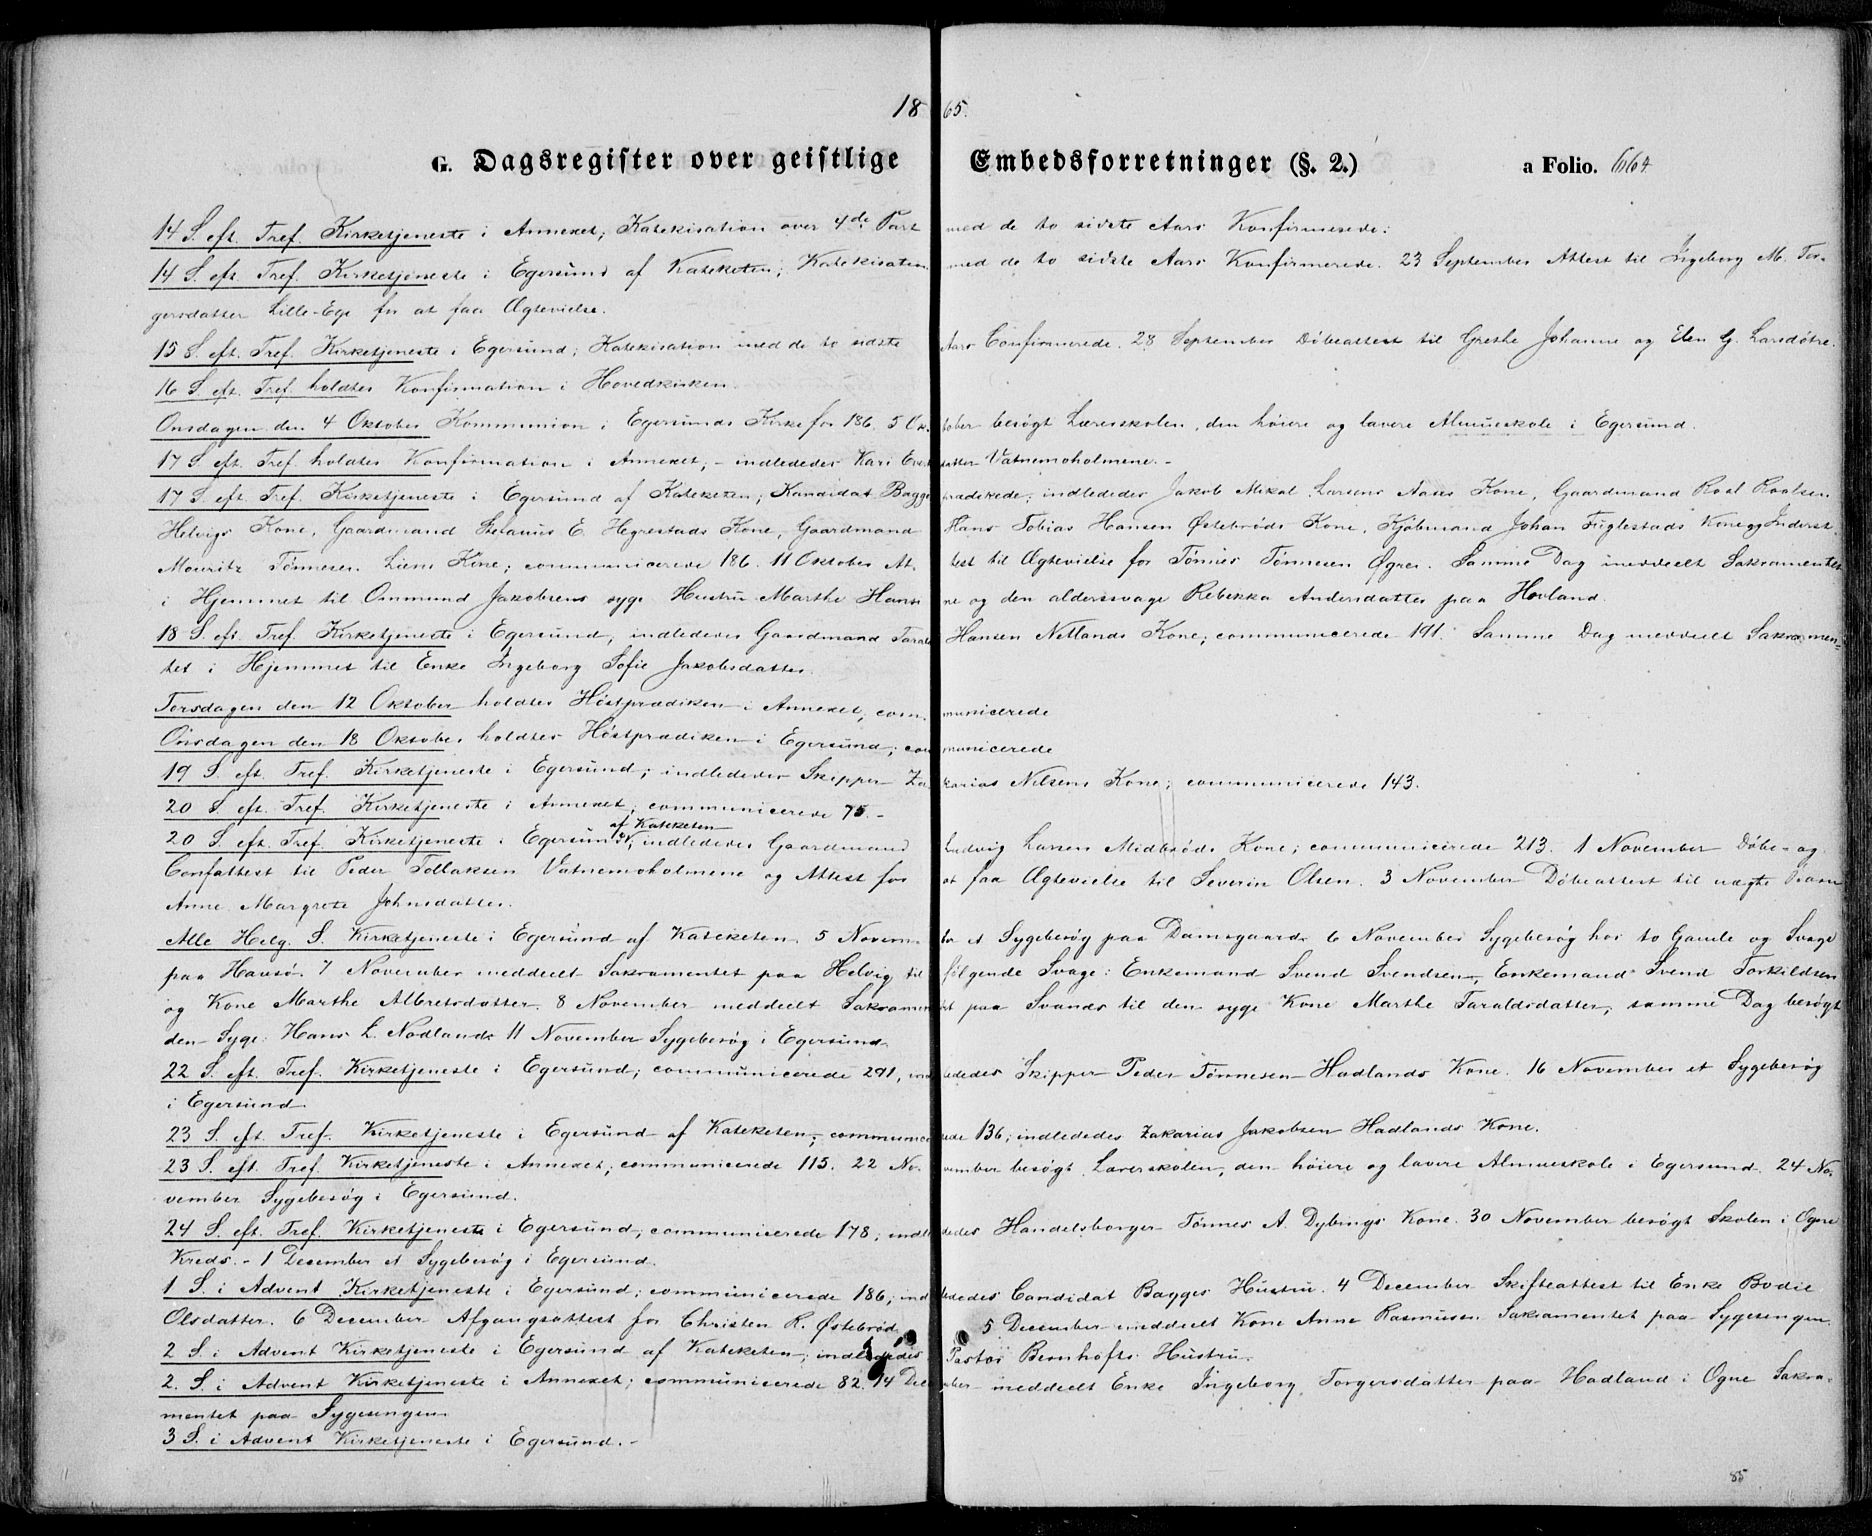 1865.
G. Dagsregister over geistlige Embedsforretninger (§. 2.) a Folio. 664
14 S. eft. Tref. Kirketjeneste i Annexet; Katekisation over 4de Part med de to sidste Aars Konfirmerede.
14 S. eft. Tref. Kirketjeneste i Egersund af Kateketen; Katekisation med de to sidste Aars Konfirmerede. 23 September Attest til Ingeborg M. Tor-
gersdatter Lille-Ege for at faa Ægtevielse.
15 S. eft. Tref. Kirketjeneste i Egersund; Katekisation med de to sidste Aars Confirmerede. 28 September Døbeattest til Grethe Johanne og Elen G. Larsdøtre.
16 S. eft. Tref. holdtes Konfirmation i Hovedkirken.
Onsdagen den 4 Oktober Kommunion i Egersunds Kirke for 186. 5 Oktober besøgt Lærerskolen, den høiere og lavere Almueskole i Egersund.
17 S. eft. Tref. holdtes Konfirmation i Annexet; - indlededes Kari datter Vatnemoholmene. -
17 S. eft. Tref. Kirketjeneste i Egersund af Kateketen; Kandidat Bagge prædikede; indlededes Jakob Mikal Larsens Aases Kone, Gaardmand Roal Roalsen
Helvigs Kone, Gaardmand Stefanus E. Hegrestads Kone, Gaardmand Hans Tobias Hansen Østebrøds Kone, Kjøbmand Johan Fuglestads Kone og Inderst
Mouritz Tønnesen Liens Kone; communicerede 186. 11 Oktober Attest til Ægtevielse for Tønnes Tønnesen Øgrei. Samme Dag meddeelt Sakramentet
i Hjemmet til Ommund Jakobsens syge Hustru Marthe Hans ne og den alderssvage Rebekka Andersdatter paa Hovland.
18 S. eft. Tref. Kirketjeneste i Egersund, indlededes Gaardmand Tarald Hansen Netlands Kone; communicerede 191. Samme Dag meddeelt Sakramen-
tet i Hjemmet til Enke Ingeborg Sofie Jakobsdatter.
Torsdagen den 12 Oktober holdtes Høstprædiken i Annexet, communicerede
Onsdagen den 18 Oktober holdtes Høstprædiken i Egersund; communicerede
19 S. eft. Tref. Kirketjeneste i Egersund; indlededes Skipper Zakarias Nilsens Kone; communicerede 143.
20 S. eft. Tref. Kirketjeneste i Annexet; communicerede 75. -
af Kateketen
20 S. eft. Tref. Kirketjeneste i Egersund; indlededes Gaardmand Ludvig Larsen Midbrøds Kone; communicerede 213. 1 November Døbe- og
Confattest til Peder Tollaksen Vatnemoholmene og Attest for at faa Ægtevielse til Severin Olsen. 3 November Døbeattest til uægte Barn
Anne Margrete Johnsdatter.
Alle Helg. S. Kirketjeneste i Egersund af Kateketen. 5 November et Sygebesøg paa Damsgaard. 6 November Sygebesøg hos to Gamle og Svage
paa Havsø. 7 November meddeelt Sakramentet paa Helvig til følgende Svage: Enkemand Svend Svendsen, Enkemand Svend Torkildsen
og Kone Marthe Albretsdatter. 8 November meddeelt Sakramentet paa Svands til den syge Kone Marthe Taraldsdatter, samme Dag besøgt
den Syge Hans L. Nodland. 11 November Sygebesøg i Egersund.
22 S. eft. Tref. Kirketjeneste i Egersund; communicerede 291, indlededes Skipper Peder Tønnesen Hadlands Kone. 16 November et Sygebesøg
i Egersund.
23 S. eft. Tref. Kirketjeneste i Egersund af Kateketen; communicerede 136; indlededes Zakarias Jakobsen Hadlands Kone.
23 S. eft. Tref. Kirketjeneste i Annexet; communicerede 115. 22 November besøgt Lærerskolen, den høiere og lavere Almueskole i Egersund. 24 No-
vember Sygebesøg i Egersund.
24 S. eft. Tref. Kirketjeneste i Egersund; communicerede 178; indlededes Handelsborger Tønnes A. Dybings Kone. 30 November besøgt Skolen i Ogne
Kreds. - 1 December et Sygebesøg i Egersund.
1 S. i Advent Kirketjeneste i Egersund; communicerede 186; indlededes Candidat Bagges Hustru. 4 December Skifteattest til Enke Bodil
Olsdatter. 6 December Afgangsattest for Christen R. Østebrød. 5 December meddeelt Kone Anne Rasmusen Sakramentet paa Sygesengen.
2 S. i Advent Kirketjeneste i Egersund af Kateketen; indlededes Pastor Bernhofts Hustru.
2. S. i Advent Kirketjeneste i Annexet; communicerede 82. 14 December meddeelt Enke Ingeborg Torgersdatter paa Hadland i Ogne Sakra-
mentet paa Sygesengen.
3 S. i Advent Kirketjeneste i Egersund. -
85